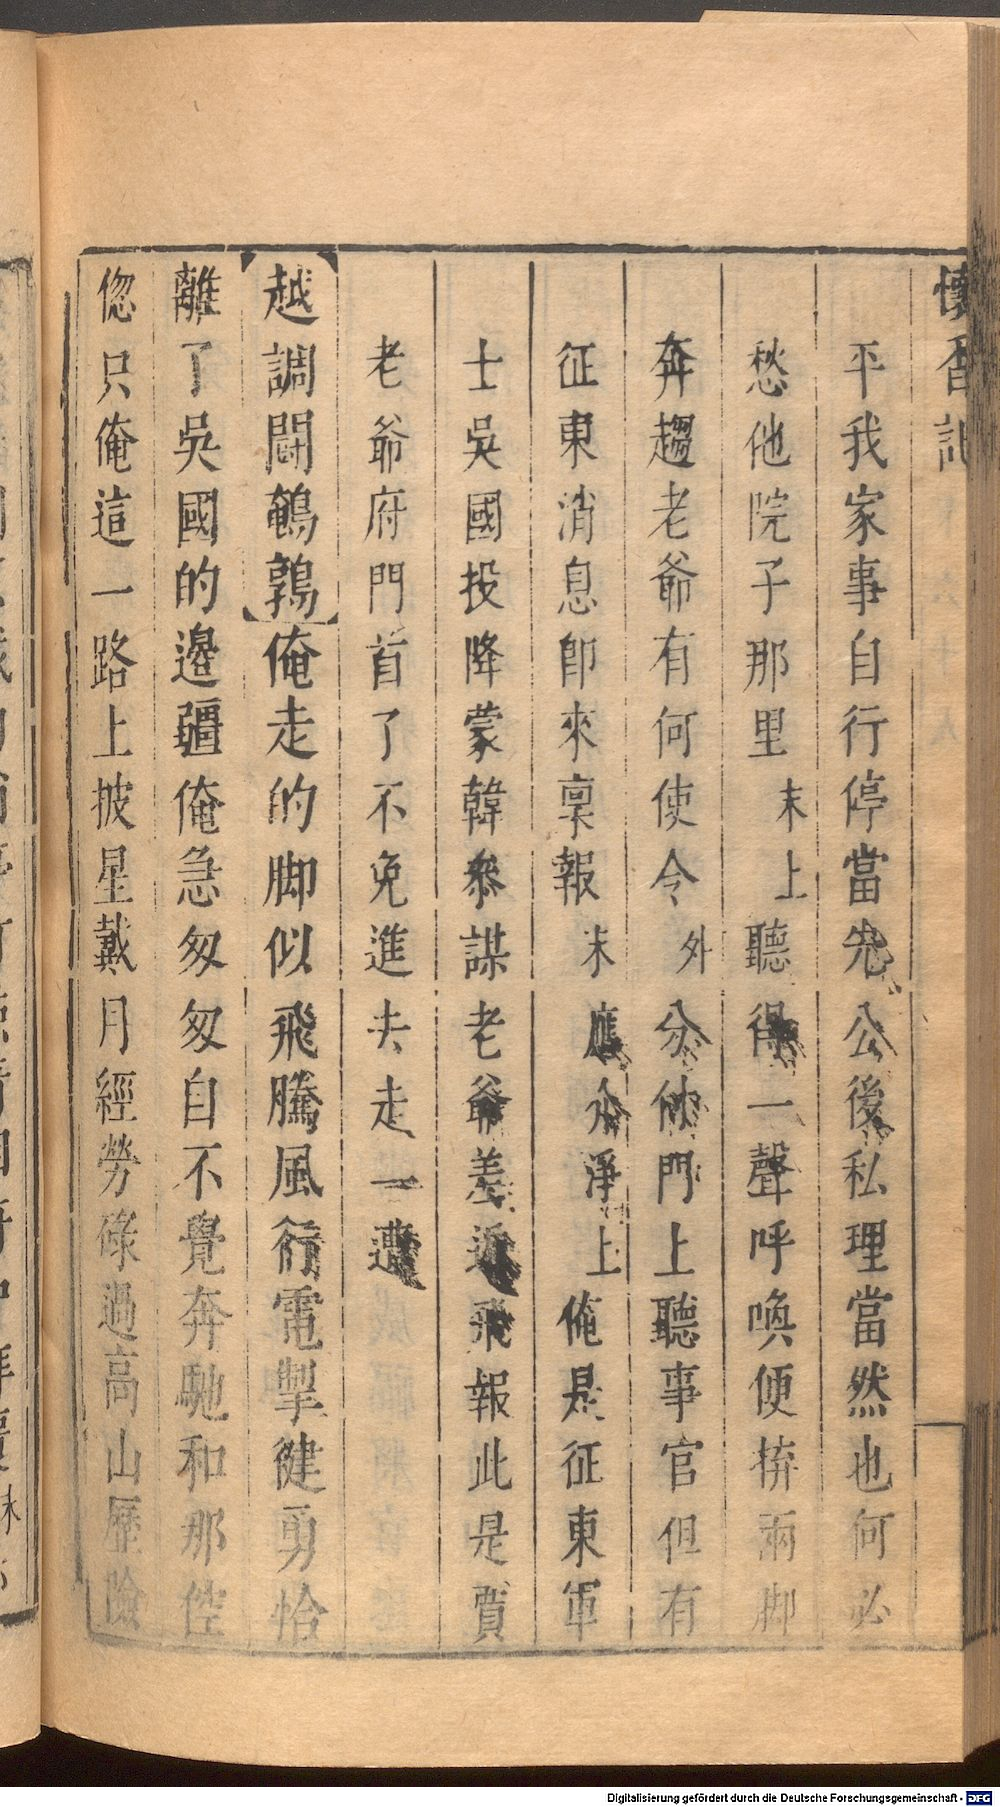 懷香記
平我家事自行停當先公後私理當然也何必
愁他院子那里末上聽得一聲呼喚便拚兩脚
奔趨老爺有何使令外分付門上聽事官但有
征東消息即來稟報末應介淨上俺是征東軍
士吳國投降蒙韓叅謀老爺差近飛報此是賈
老爺府門首了不免進去走一遭
越調鬪鵪鶉俺走的脚似飛騰風行電掣健勇恰
離了吳國的邊疆俺急匆匆自不覺奔馳和那倥
偬只俺這一路上披星戴月經勞碌過高山歷險
Digitalisierung gefördert durch die Deutsche Forschungsgemeinschaft - DFG